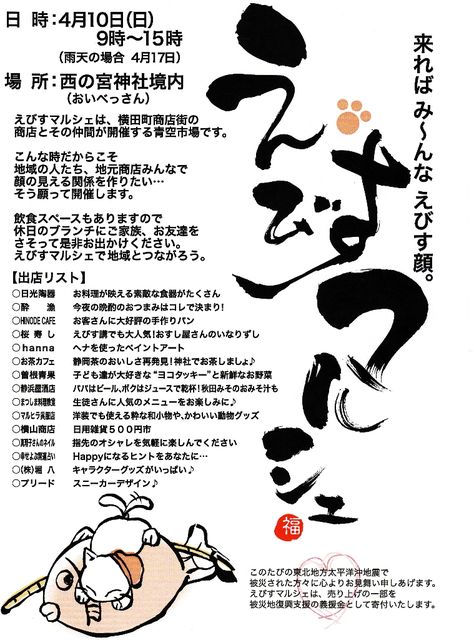 日 時:4月10日(日)
9時〜15時
(雨天の場合 4月17日)
場 所:西の宮神社境内
(おいべっさん)
えびすマルシェは、横田町商店街の
商店とその仲間が開催する青空市場です。
こんな時だからこそ
地域の人たち、地元商店みんなで
顔の見える関係を作りたい…
そう願って開催します。
飲食スペースもありますので
休日のブランチにご家族、お友達を
さそって是非お出かけください。
えびすマルシェで地域とつながろう。
【出店リスト】
○日光陶器 お料理が映える素敵な食器がたくさん
○酔 漁 今夜の晩酌のおつまみはコレで決まり!
○HINODE CAFE お客さんに大好評の手作りパン
○桜 寿 し えびす講でも大人気!おすし屋さんのいなりずし
○hanna ヘナを使ったペイントアート
○お茶カフェ 静岡茶のおいしさ再発見!神社でお茶しましょ♪
○曽根青果 子ども達が大好きな“ヨコタッキー”と新鮮なお野菜
○静浜屋酒店 パパはビール、ボクはジュースで乾杯!秋田みそのおみそ汁も
○まつしま料理教室 生徒さんに人気のメニューをお楽しみに♪
○マルヒラ呉服店 洋装でも使える粋な和小物や、かわいい動物グッズ
○横山商店 日用雑貨500円市
○真明子さんのネイル 指先のオシャレを気軽に楽しんでください
○幸せよぶ開運占い Happyになるヒントをあなたに…
○(株)堀 八 キャラクターグッズがいっぱい♪
○ブリード スニーカーデザイン♪
来れば み〜んな えびす顔。
えびすマルシェ
福
このたびの東北地方太平洋沖地震で
被災された方々に心よりお見舞い申しあげます。
えびすマルシェは、売り上げの一部を
被災地復興支援の義援金として寄付いたします。